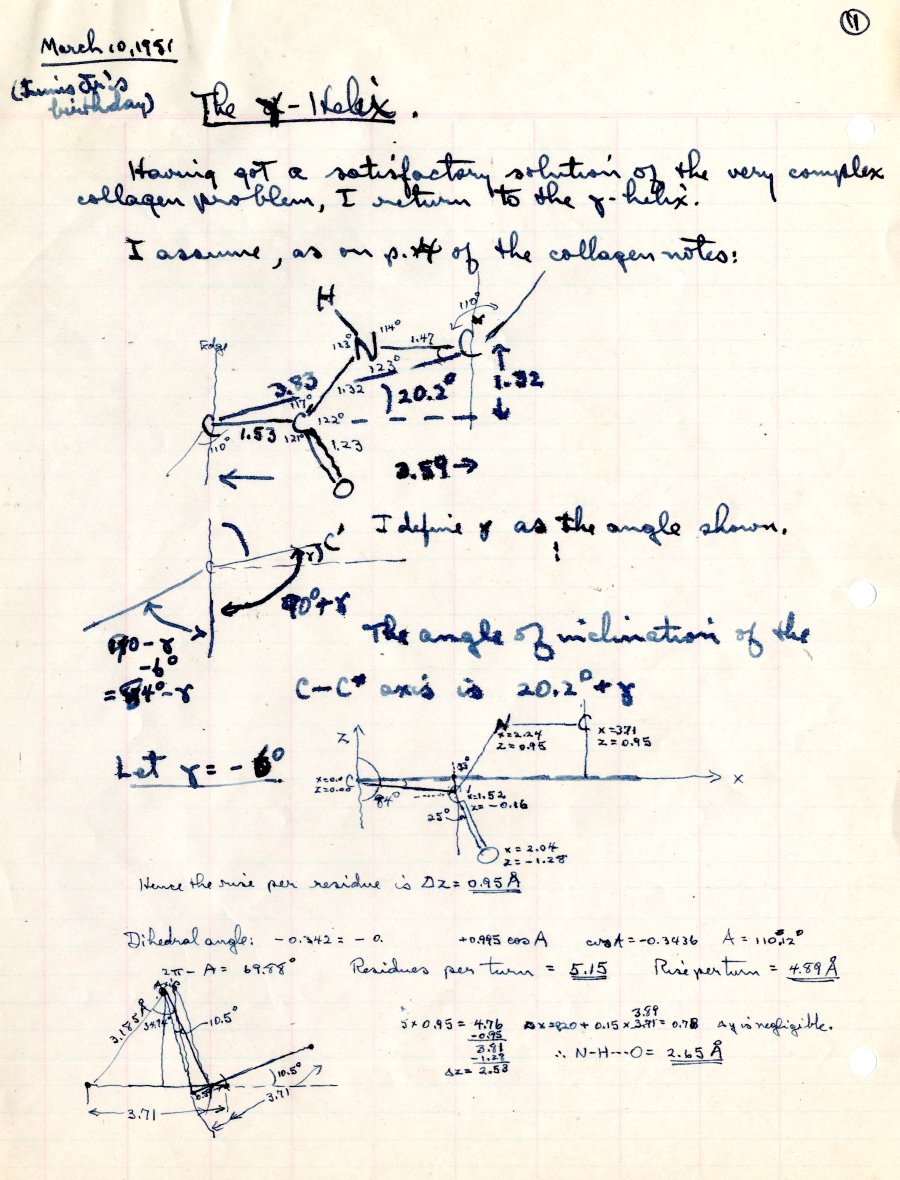 11
March 10, 1951
birthday)
The γ-Helix.
Having got a satisfactory solution of the very complex
collagen problem, I return to the γ-helix.
I assume, as on p. of the collagen notes:
H
110°
Edge
123° N 114° 1.47 C*
123°
3.83 1.32 20.2° 1.32
117°
C 1.53 C 122°
110° 121° 1.23
O
3.59 →
I define γ as the angle shown.
C'
90° + γ
γ
-6°
= 84° - γ
The angle of inclination of the
C–C* axis is 20.2° + γ
Let γ = -6°
z
N
x = 2.24
z = 0.95
C
x = 3.71
z = 0.95
x = 0.00
z = 0.00
C
84°
33°
C'
x = 1.52
z = -0.16
x
25°
O
x = 2.04
z = -1.28
Hence the rise per residue is Δz = 0.95 Å
Dihedral angle: -0.342 = -0. +0.995 cos A cos A = -0.3436 A = 110.12°
2π - A = 69.88° Residues per turn = 5.15 Rise per turn = 4.89 Å
Axis
3.185 Å
34.94°
10.5°
10.5°
3.71
3.71
5 x 0.95 = 4.76
-0.95
3.81
-1.28
Δz = 2.53
3.89
Δx = 0.20 + 0.15 x 3.71 = 0.78 Δy is negligible.
∴ N-H---O = 2.65 Å